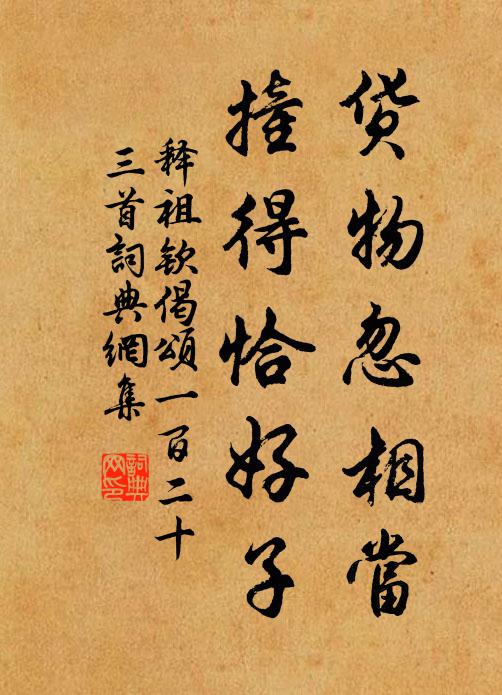 货物忽相當
撞得恰好子
释祖钦偈頌一百二十
三首詞典網集
詞典
网印